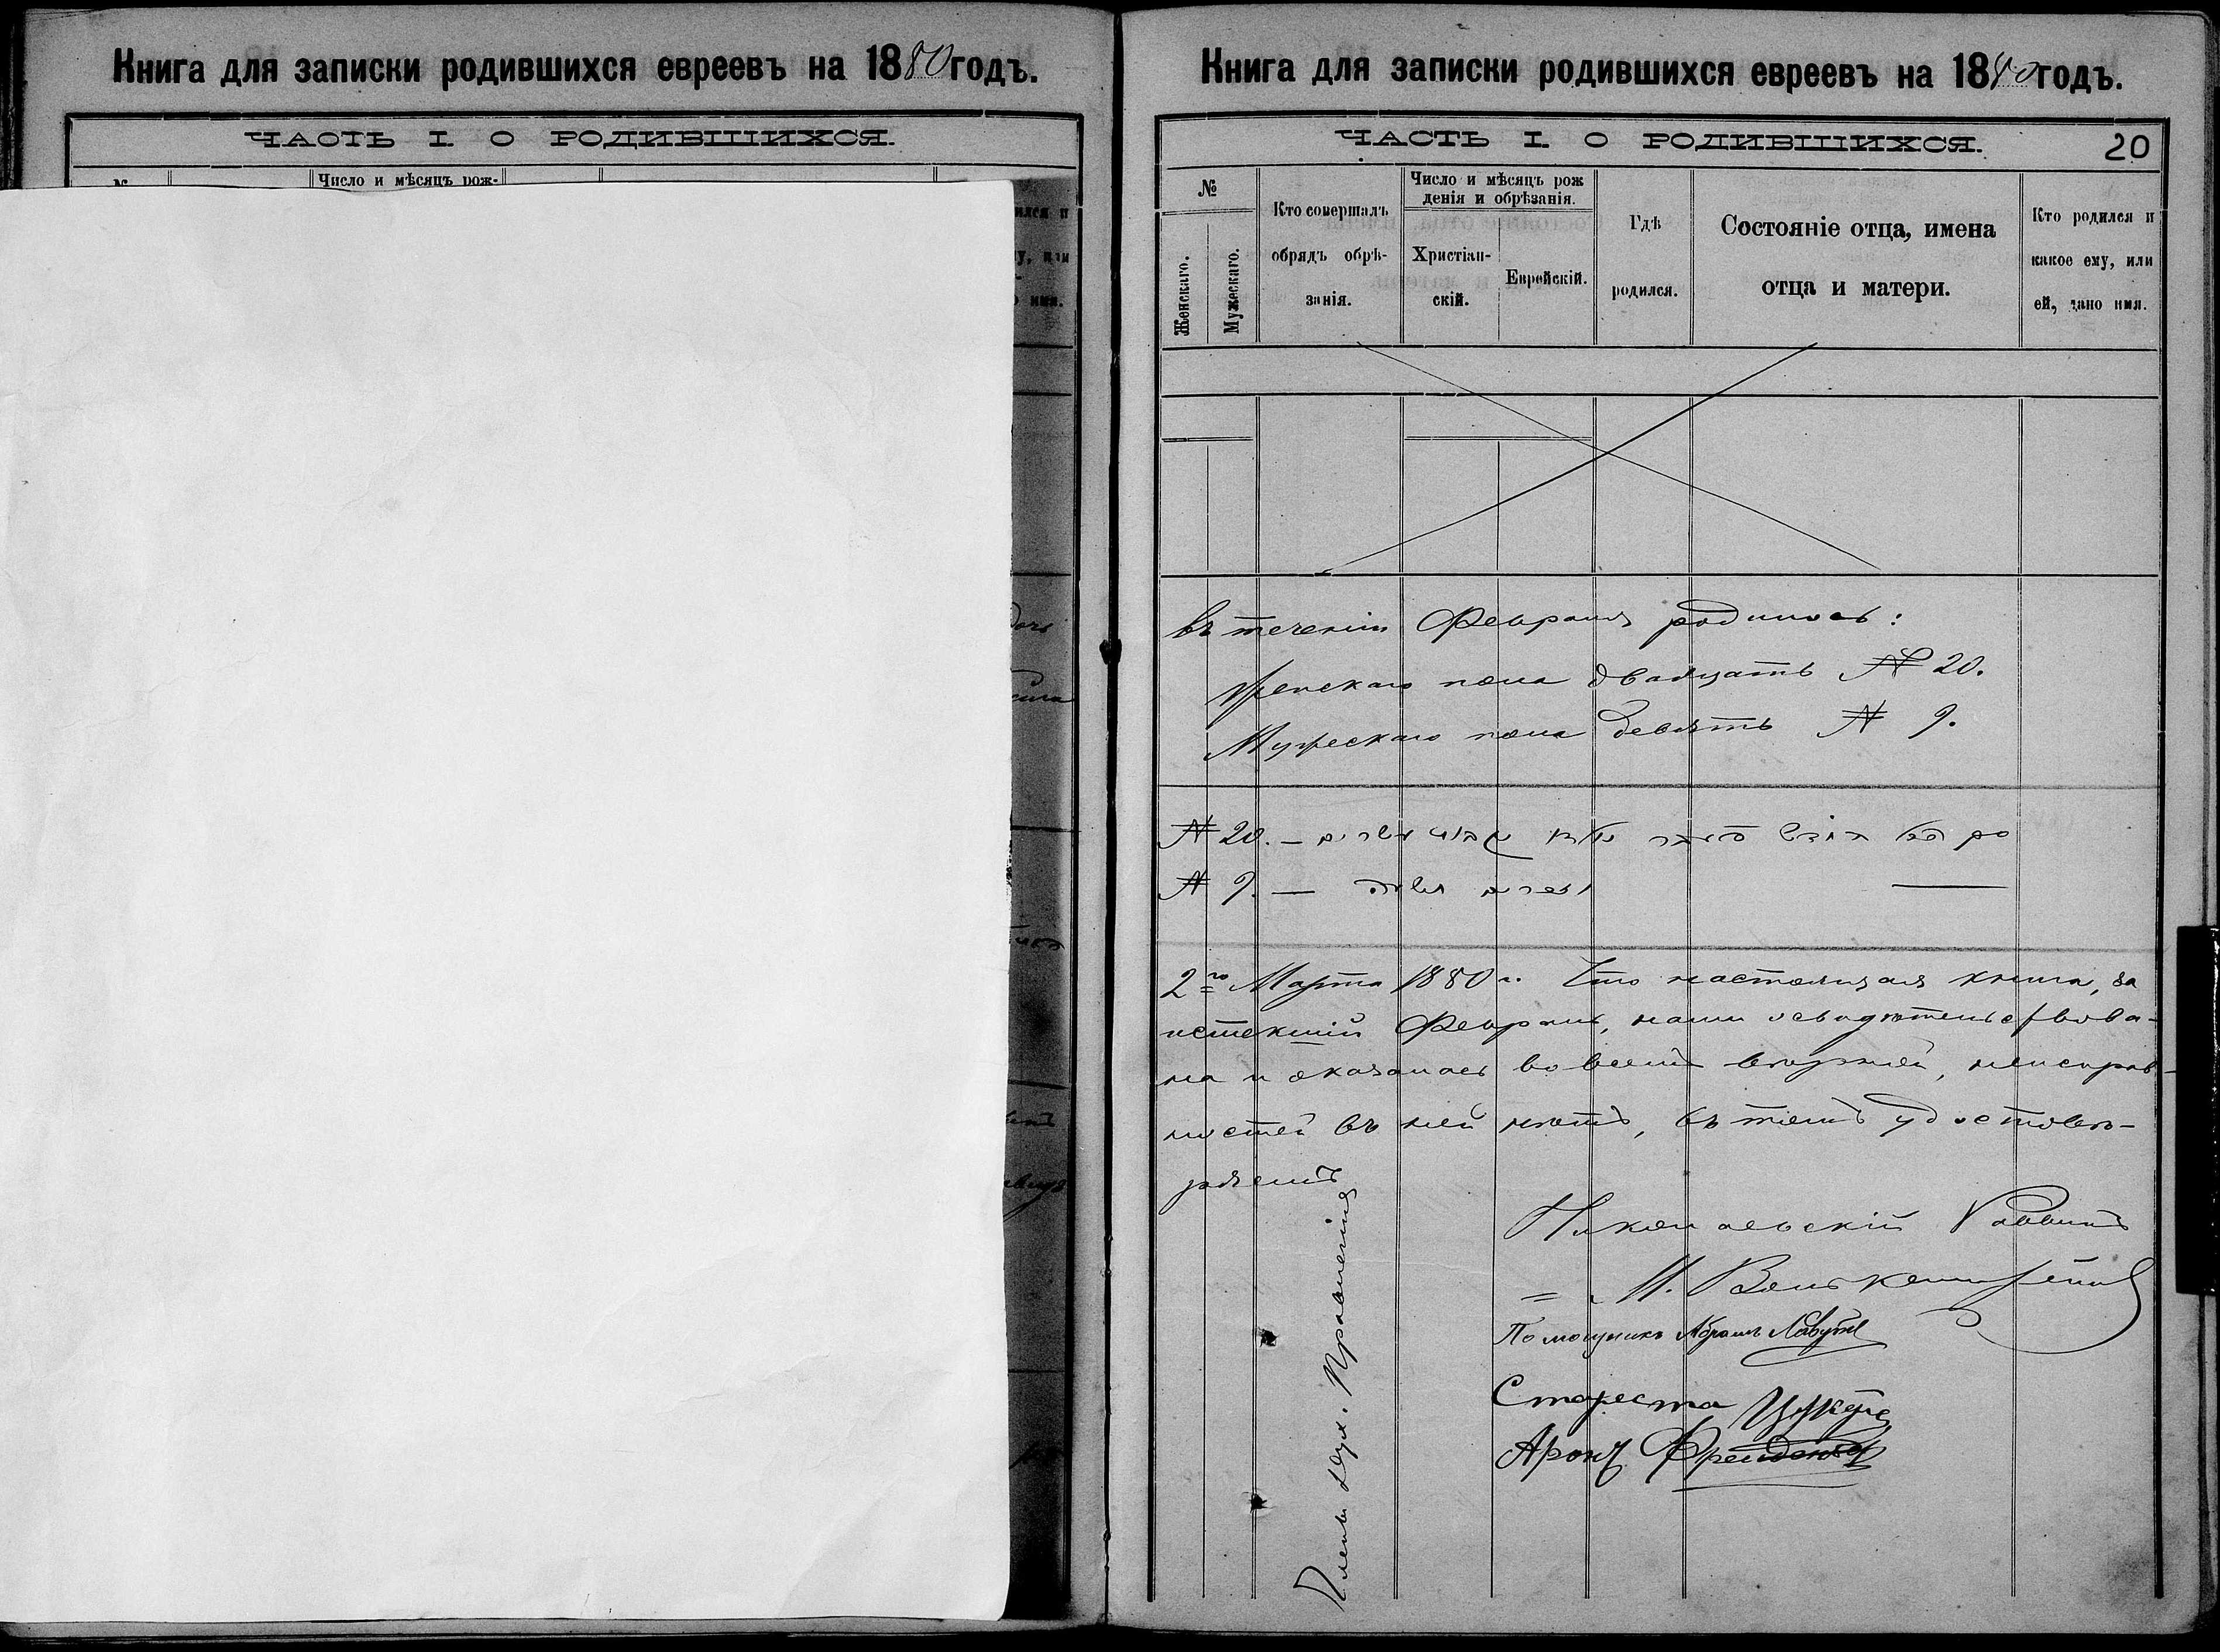 Книга для записки родившихся евреевъ на 1880 годъ.
ЧАСТЬ I. О РОДИВШИХСЯ.
Число и мѣсяцъ рож-
Книга для записки родившихся евреевъ на 1880 годъ.
ЧАСТЬ I. О РОДИВШИХСЯ.
20
№
Женскаго.
Мужескаго.
Кто совершалъ
обрядъ обрѣ-
занія.
Число и мѣсяцъ рож
денія и обрѣзанія.
Христіан-
скій.
Еврейскій.
Гдѣ
родился.
Состояніе отца, имена
отца и матери.
Кто родился и
какое ему, или
ей, дано имя.
въ теченіи Февраля родилось:
Женскаго пола двадцать № 20.
Мужескаго пола девять № 9.
№ 20. —
№ 9. —
2го Марта 1880 г. Что настоящая книга, за
истекшій Февраль, нами освидѣтельствова-
на и оказалась во всемъ вѣрной, неисправ-
ностей въ ней нѣтъ, въ томъ удостовѣ-
ряемъ
Николаевскій Раввинъ
Помощникъ Абрамъ
Члены Дух. Правленія
Староста
Аронъ